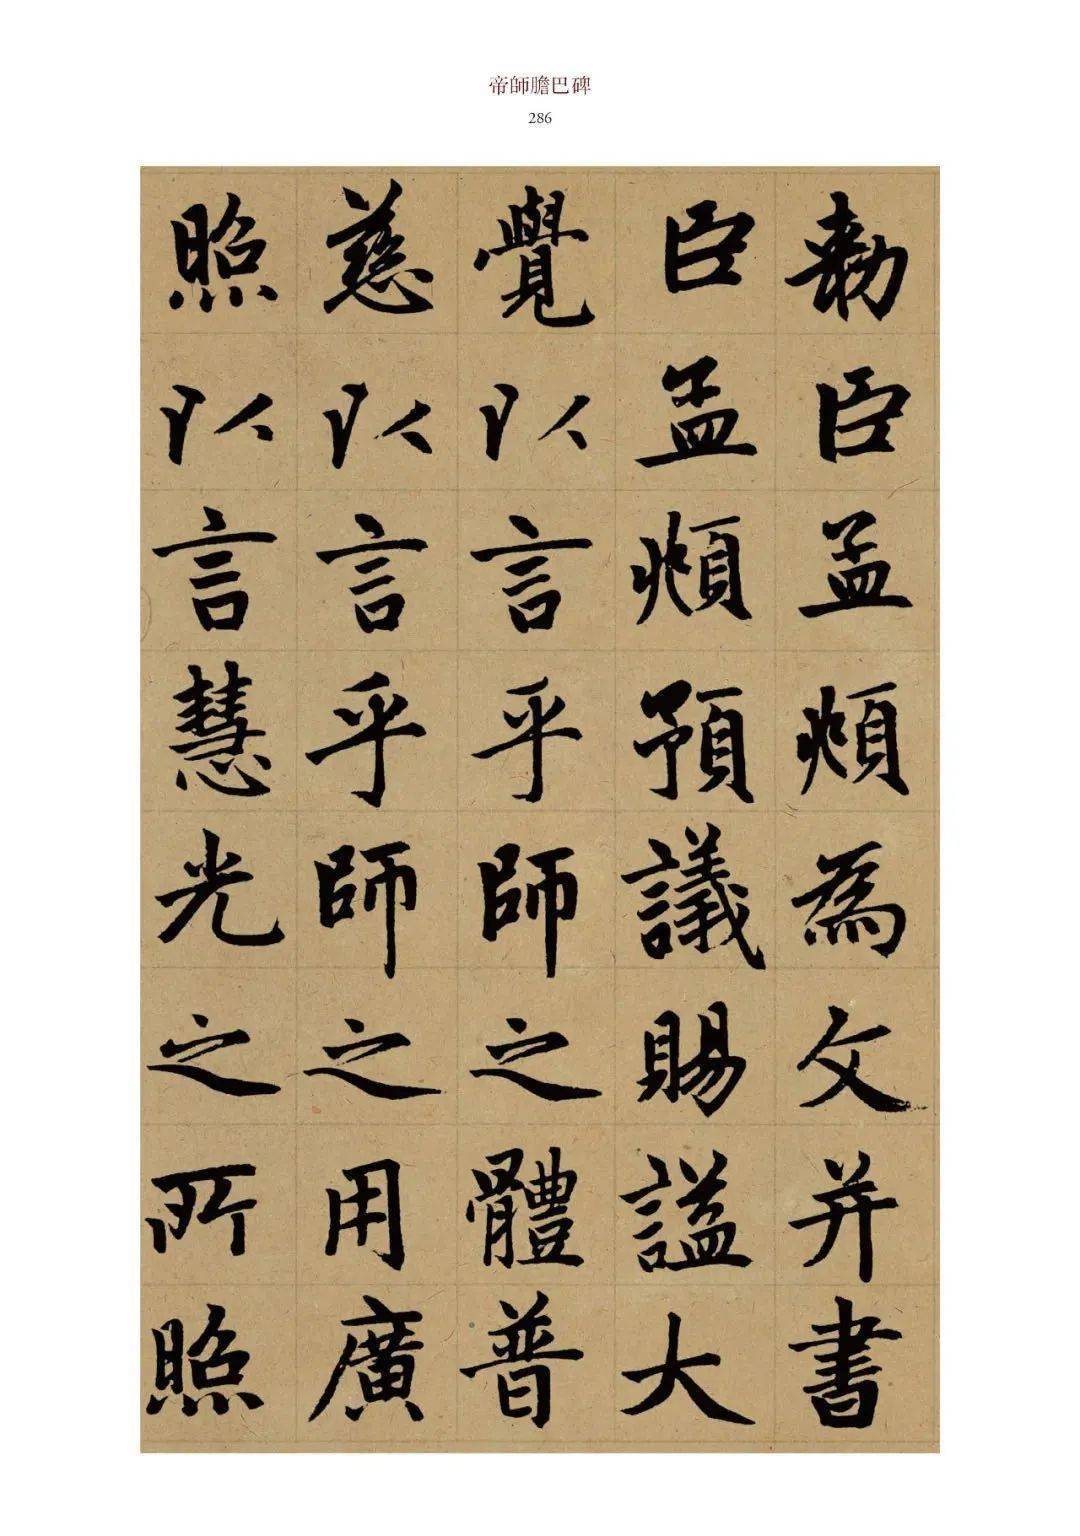 帝師膽巴碑
286
敕臣孟頫為文并書
臣孟頫預議賜謚大
覺以言乎師之體普
慈以言乎師之用廣
照以言慧光之所照